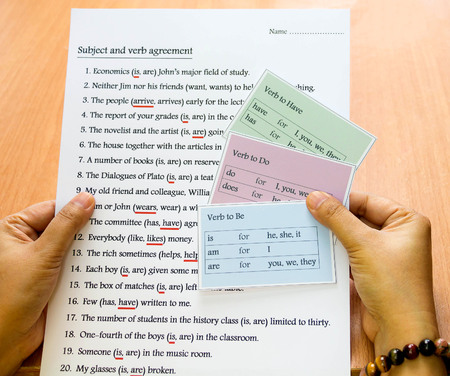 Name ........................
Subject and verb agreement
1. Economics (is, are) John's major field of study.
2. Neither Jim nor his friends (want, wants) to
3. The people (arrive, arrives) early for the
4. The report of your grades (is, are) in the
5. The novelist and the artist (is, are)
6. The house together with the articles in
7. A number of books (is, are) on reserve
8. The Dialogues of Plato (is, are) a
9. My old friend and colleague,
or John (wears, wear) a
The committee (has, have)
12. Everybody (like, likes) money.
13. The rich sometimes (helps, help
14. Each boy (is, are) given some
15. The box of matches (is, are)
16. Few (has, have) written to me.
17. The number of students in the history class (is, are) limited to thirty.
18. One-fourth of the boys (is, are) in the classroom.
19. Someone (is, are) in the music room.
20. My glasses (is, are) broken.
Verb to Have
have for I, you, we, they
has for
Verb to Do
do for I, you, we,
does for
Verb to Be
is for he, she, it
am for I
are for you, we, they